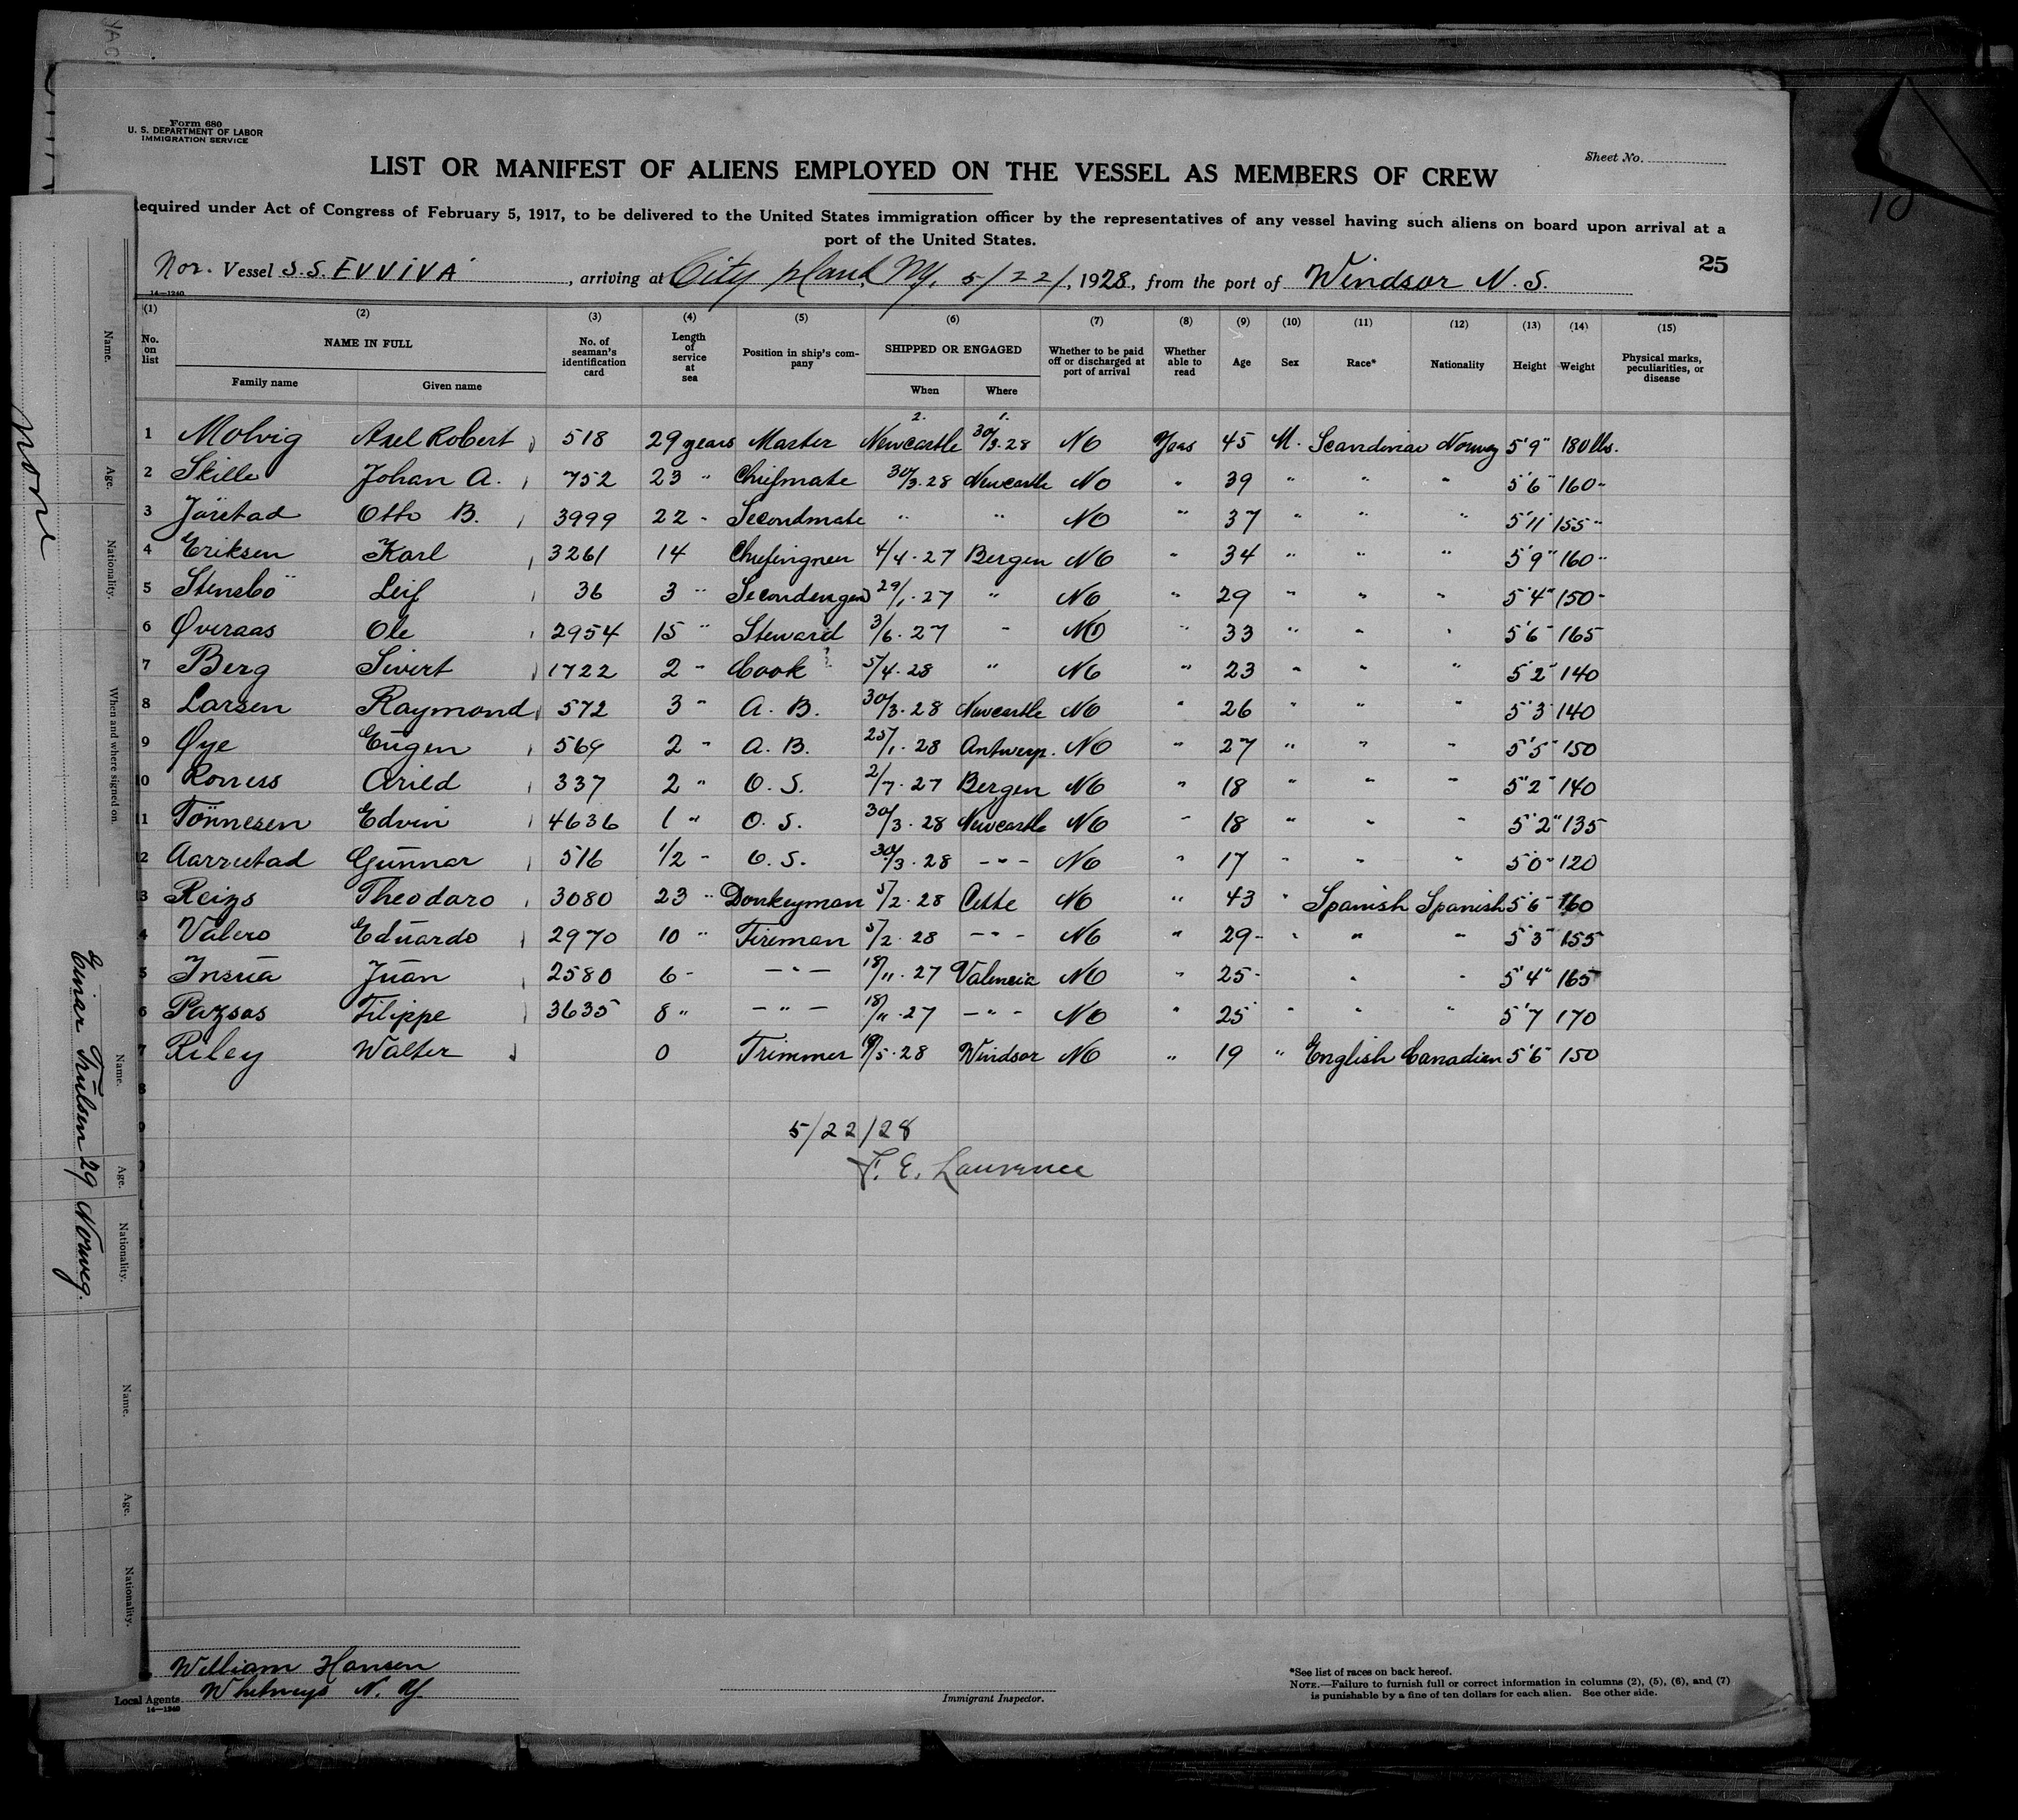 Form 680
U. S. DEPARTMENT OF LABOR
IMMIGRATION SERVICE
Sheet No.
LIST OR MANIFEST OF ALIENS EMPLOYED ON THE VESSEL AS MEMBERS OF CREW
equired under Act of Congress of February 5, 1917, to be delivered to the United States immigration officer by the representatives of any vessel having such aliens on board upon arrival at a
port of the United States.
25
Nor. Vessel S.S. EVVIVA, arriving at City Island, NY, 5/22/, 1928, from the port of Windsor N. S.
14—1240
(1) (2) (3) (4) (5) (6) (7) (8) (9) (10) (11) (12) (13) (14) (15)
No. on list NAME IN FULL No. of seaman's identification card Length of service at sea Position in ship's company SHIPPED OR ENGAGED Whether to be paid off or discharged at port of arrival Whether able to read Age Sex Race* Nationality Height Weight Physical marks, peculiarities, or disease
Family name Given name When Where
2. 1.
1 Molvig Axel Robert 518 29 years Master Newcastle 30/3.28 No Yes 45 M. Scandinav Norway 5'9" 180 lbs.
2 Skille Johan A. 752 23 " Chiefmate 30/3.28 Newcastle No " 39 " " " 5'6" 160 "
3 Jörstad Otto B. 3999 22 " Secondmate " " No " 37 " " " 5'11" 155 "
4 Eriksen Karl 3261 14 Chiefingneer 4/4.27 Bergen No " 34 " " " 5'9" 160 "
5 Stensbö Leif 36 3 " Secondengen 29/1.27 " No " 29 " " " 5'4" 150 "
6 Øveraas Ole 2954 15 " Steward 3/6.27 " No " 33 " " " 5'6" 165
7 Berg Sivert 1722 2 " Cook 5/4.28 " No " 23 " " " 5'2" 140
8 Larsen Raymond 572 3 " A. B. 30/3.28 Newcastle No " 26 " " " 5'3" 140
9 Øye Eugen 569 2 " A. B. 25/1.28 Antwerp. No " 27 " " " 5'5" 150
10 Roness Arild 337 2 " O. S. 2/7.27 Bergen No " 18 " " " 5'2" 140
11 Tönnesen Edvin 4636 1 " O. S. 30/3.28 Newcastle No " 18 " " " 5'2" 135
12 Aarrestad Gunnar 516 1/2 " O. S. 30/3.28 -"- No " 17 " " " 5'0" 120
3 Reigs Theodoro 3080 23 " Donkeyman 5/2.28 Cette No " 43 " Spanish Spanish 5'6" 160
4 Valero Eduardo 2970 10 " Fireman 5/2.28 -"- No " 29 " " " 5'3" 155
5 Insua Juan 2580 6 " -"- 18/11.27 Valencia No " 25 " " 5'4" 165
6 Pazsos Filippe 3635 8 " -"- 18/11.27 -"- No " 25 " " " 5'7 170
7 Riley Walter 0 Trimmer 19/5.28 Windsor No " 19 " English Canadian 5'6" 150
8
5/22/28
F. E. Lawrence
William Hansen
Local Agents Whitneys N. Y.
14—1240
Immigrant Inspector.
*See list of races on back hereof.
NOTE.—Failure to furnish full or correct information in columns (2), (5), (6), and (7)
is punishable by a fine of ten dollars for each alien. See other side.
Name. Age. Nationality. When and where signed on.
Name. Age. Nationality.
Einar Trulsen 29 Norweg.
Name. Age. Nationality.